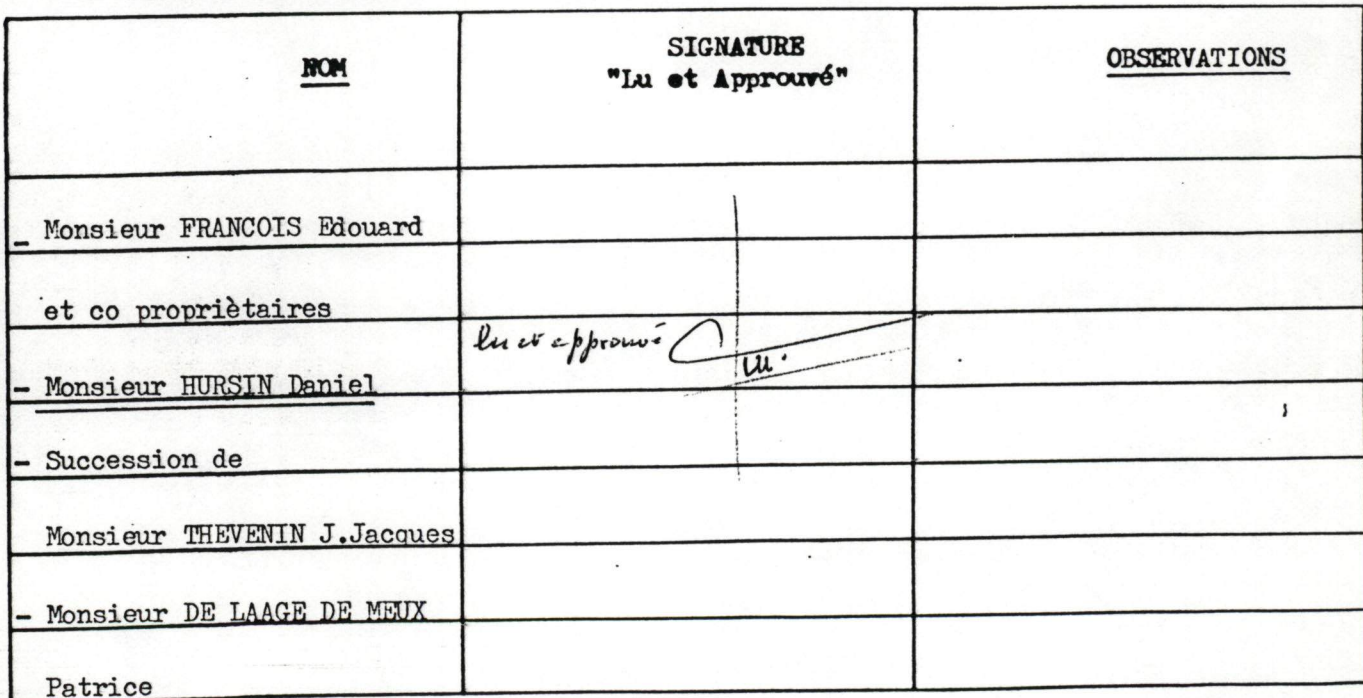 NOM
SIGNATURE
"Lu et Approuvé"
OBSERVATIONS
- Monsieur FRANCOIS Edouard
et co propriètaires
lu et approuvé
- Monsieur HURSIN Daniel
- Succession de
Monsieur THEVENIN J.Jacques
- Monsieur DE LAAGE DE MEUX
Patrice